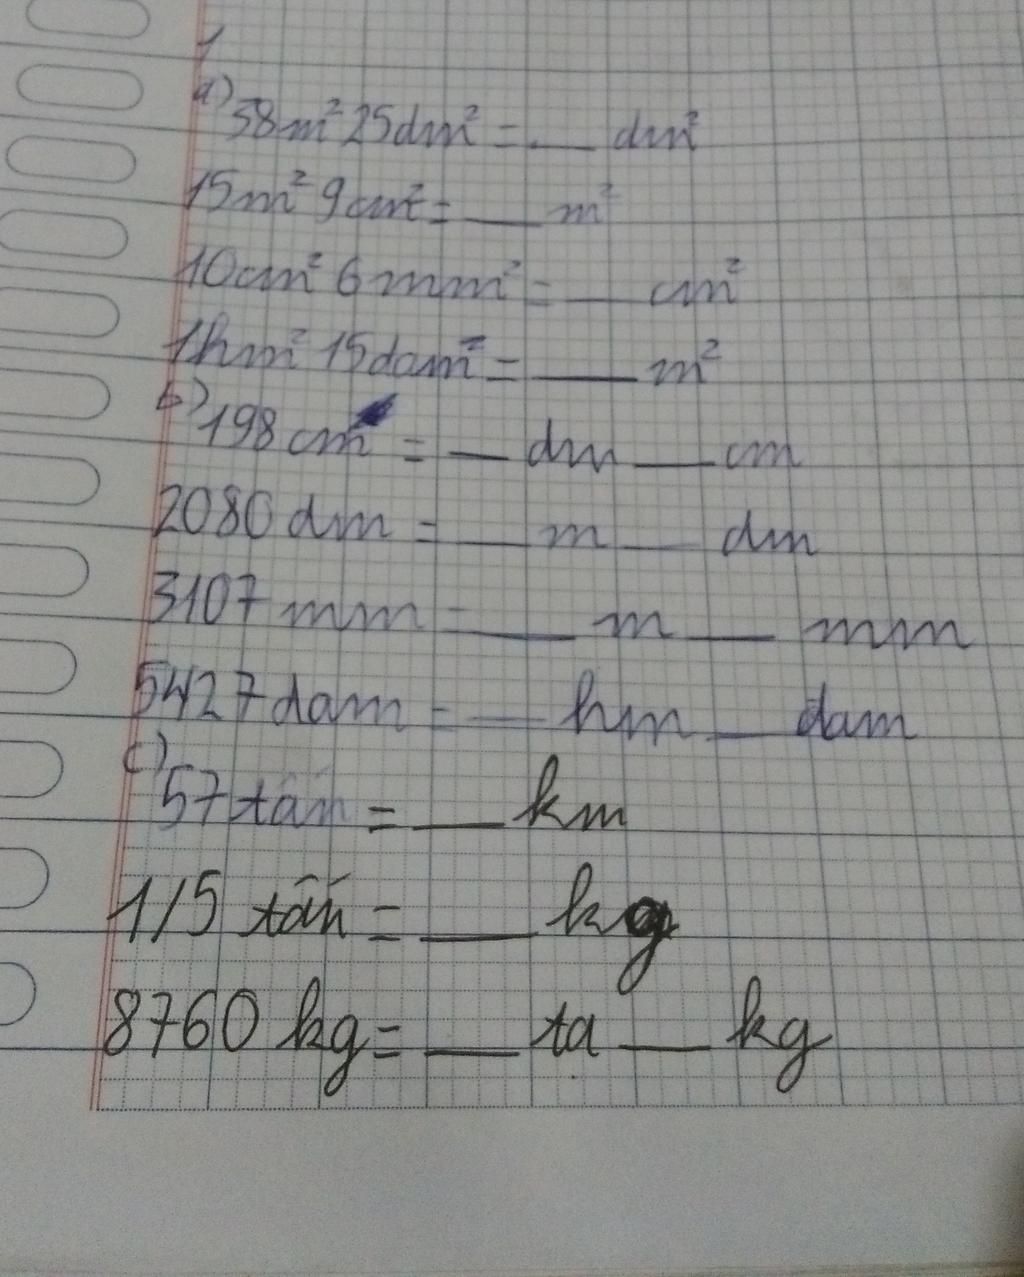 1
a) 38m² 25dm² = __ dm²
15m² 9cm² = __ m²
10cm² 6mm² = __ cm²
1hm² 15dam² = __ m²
b) 198 cm = __ dm __ cm
2080 dm = __ m __ dm
3107 mm = __ m __ mm
5427 dam = __ hm __ dam
c) 57 tấn = __ km
1/5 tấn = __ kg
8760 kg = __ ta __ kg